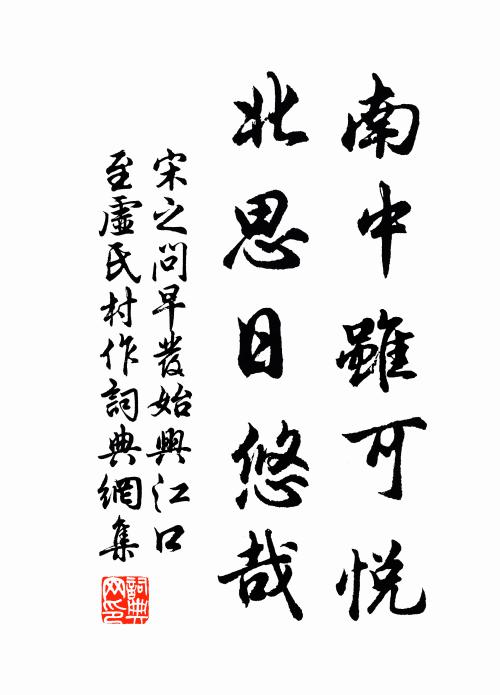 南中雖可悅
北思日悠哉
宋之問早發始興江口
至虛氏村作詞典網集